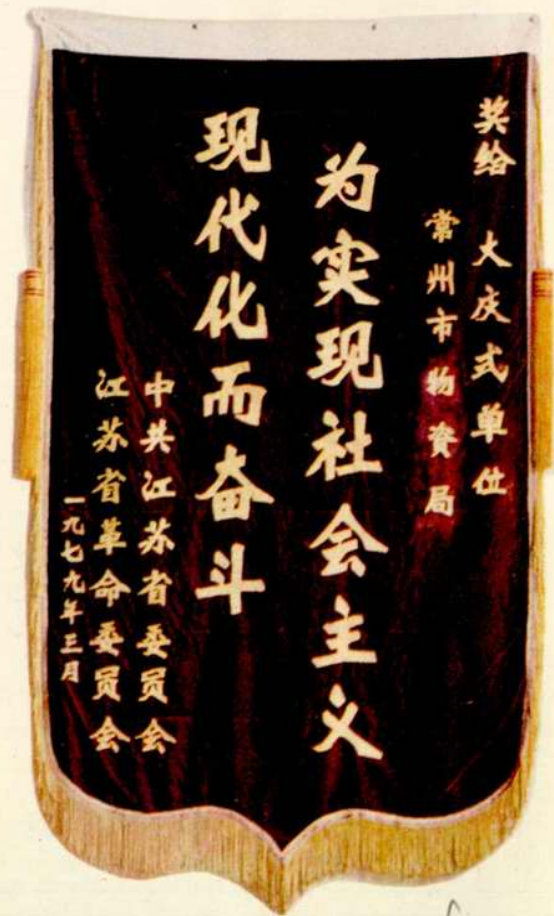 奖给 大庆式单位
常州市物资局
为实现社会主义
现代化而奋斗
中共江苏省委员会
江苏省革命委员会
一九七九年三月